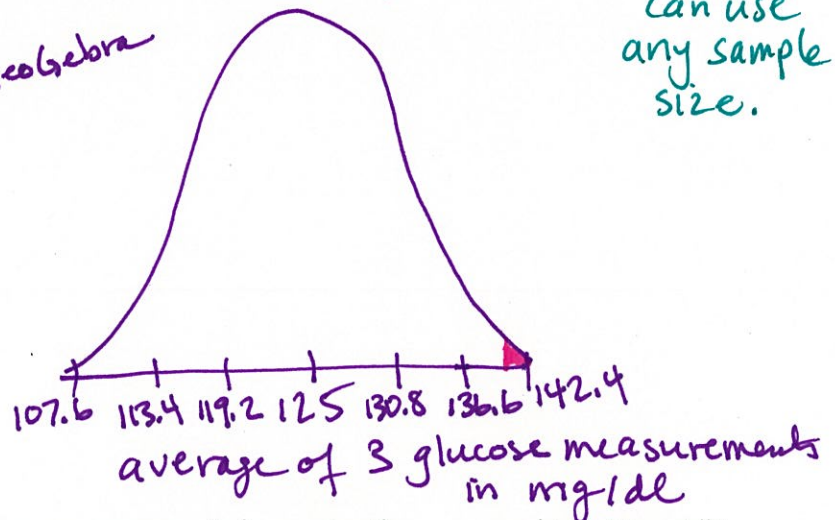 can use
any sample
size.
eoGebra
107.6 113.4 119.2 125 130.8 136.6 142.4
average of 3 glucose measurements
in mg/dl